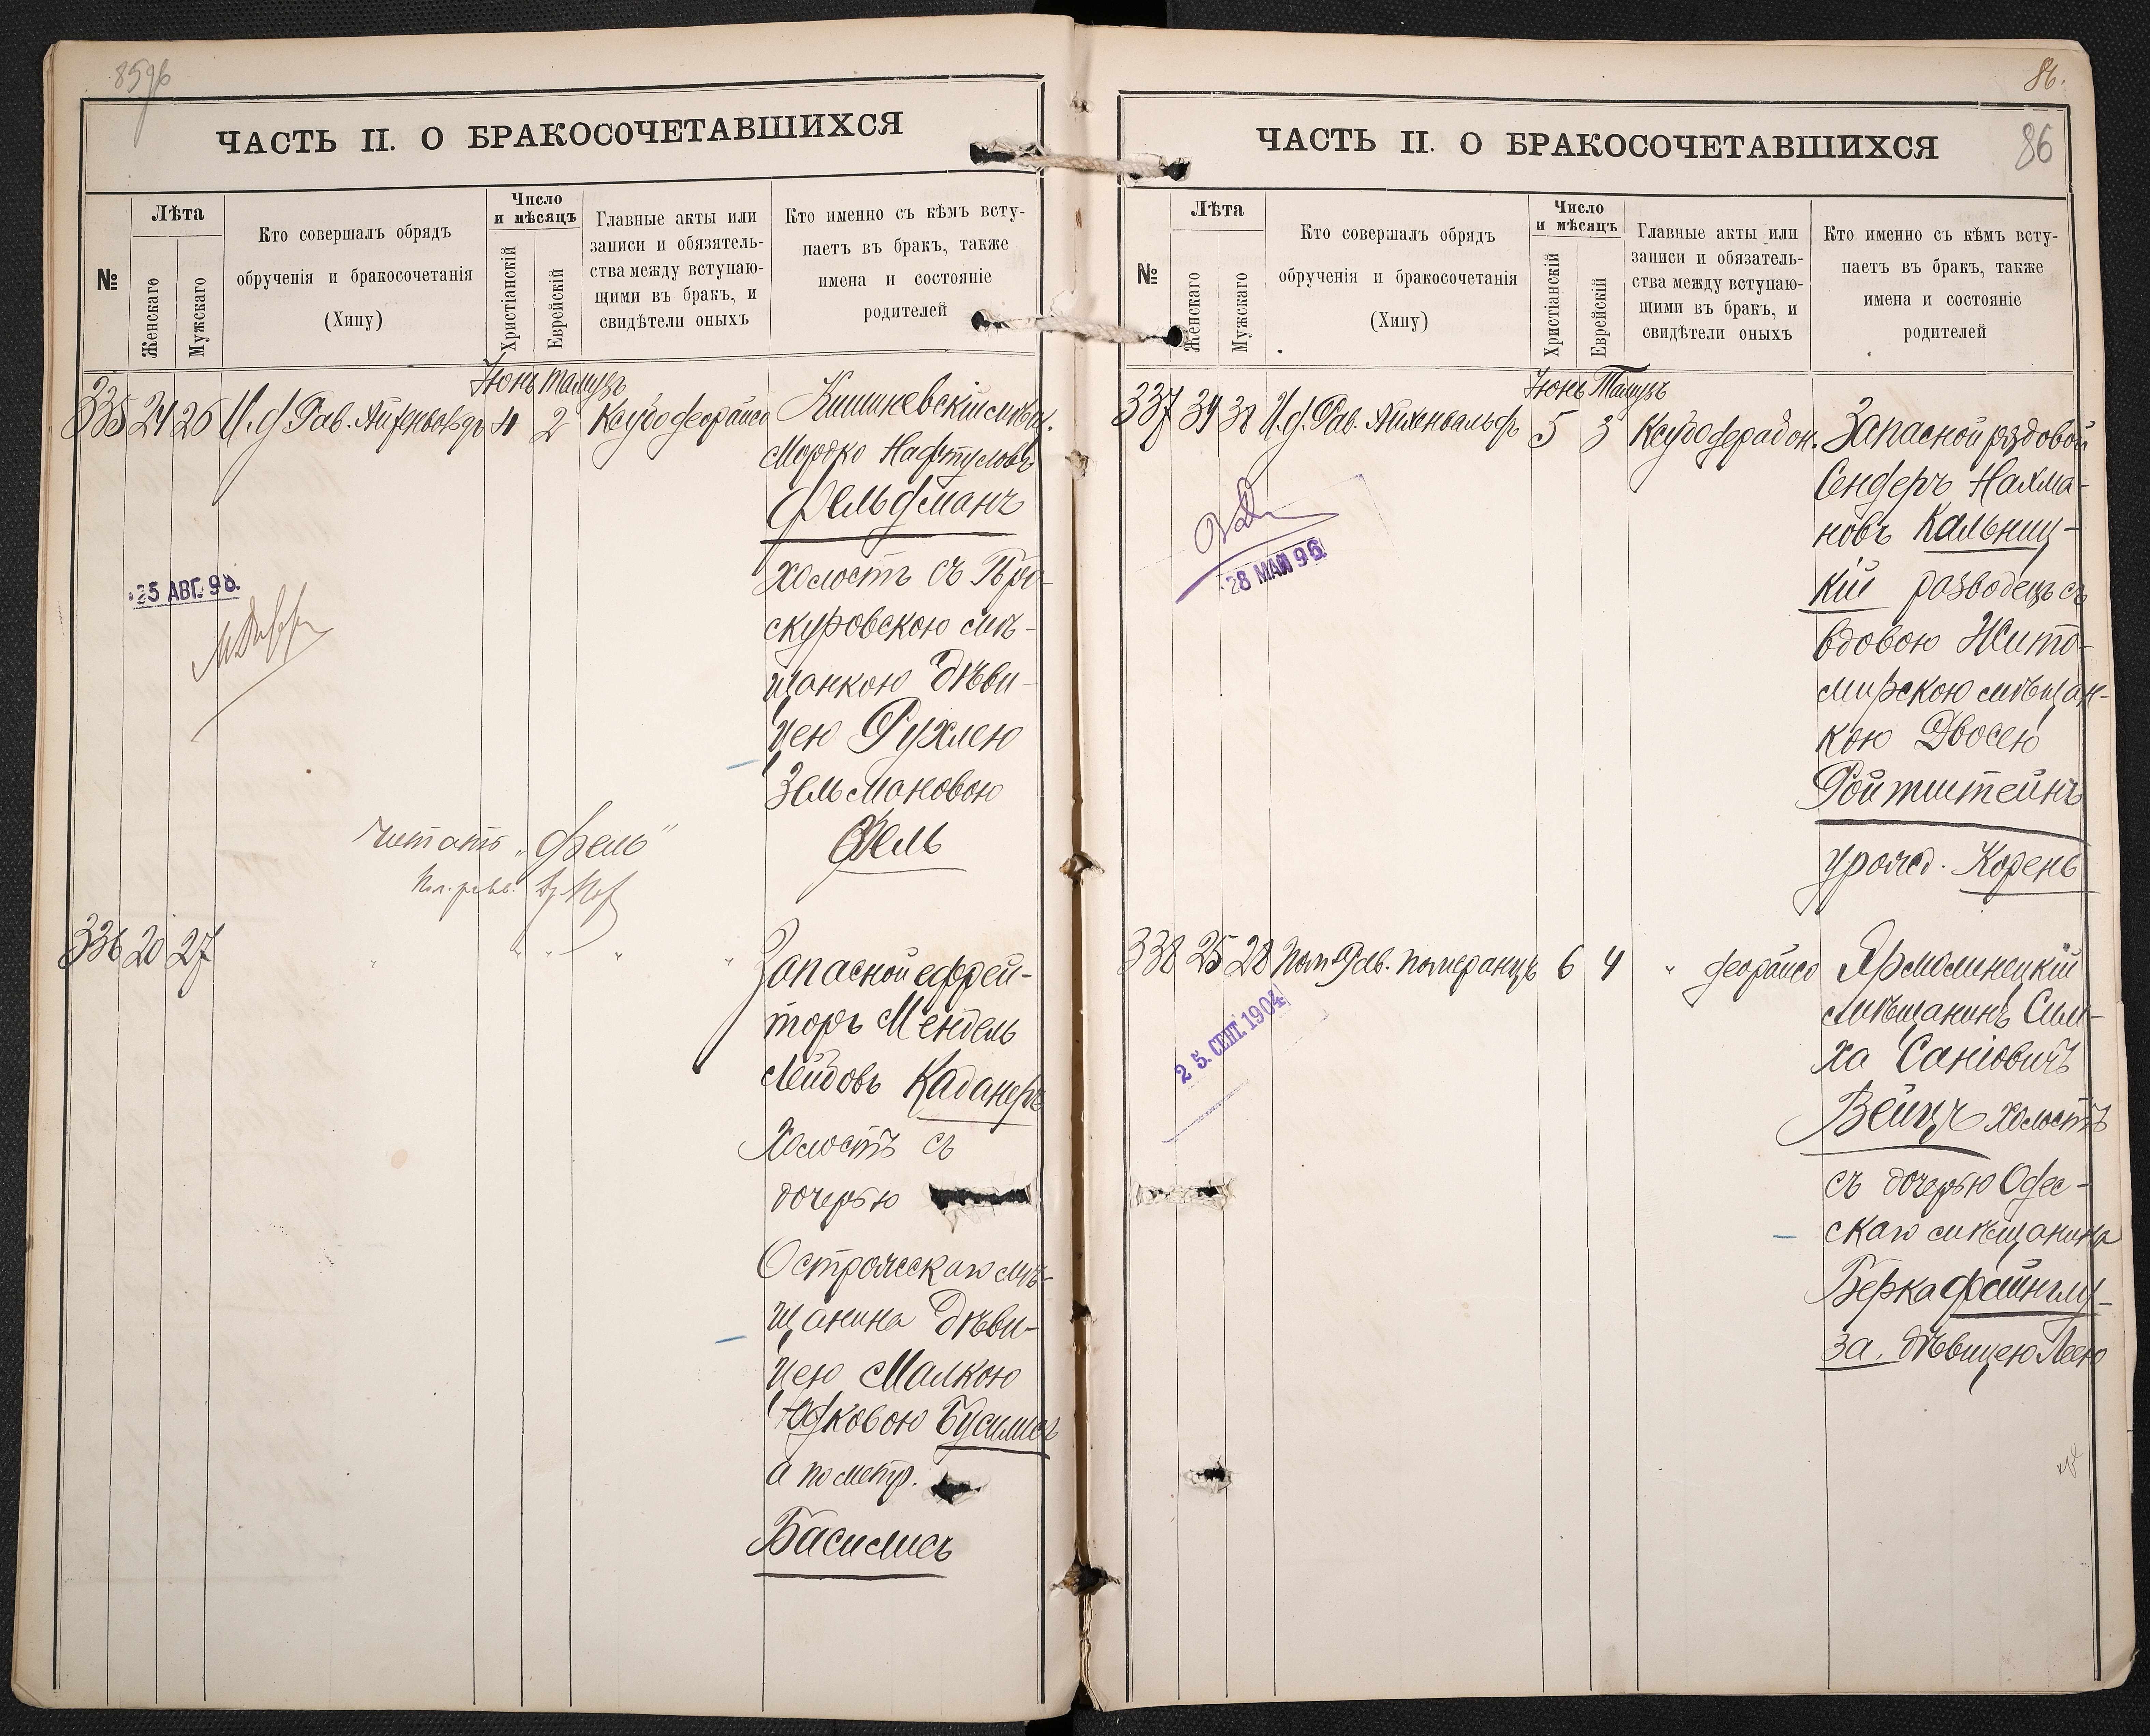 ЧАСТЬ II. О БРАКОСОЧЕТАВШИХСЯ
№
Лѣта
Женскаго
Мужскаго
Кто совершалъ обрядъ
обрученія и бракосочетанія
(Хипу)
Число
и мѣсяцъ
Христіанскій
Еврейскій
Главные акты или
записи и обязятель-
ства между вступаю-
щими въ бракъ, и
свидѣтели оныхъ
Кто именно съ кѣмъ всту-
паетъ въ бракъ, также
имена и состояніе
родителей
Іюнь Тамузъ
335 24 26 И. д. Рав. Айхенвальдъ 4 2 Ксубо деорайсо
Кишиневскій мѣщ.
Мордко Нафтуловъ
Фельдманъ
холостъ съ Про-
скуровскою мѣ-
щанкою дѣви-
цею Рухлею
Зельмановою
Фель
25 АВГ. 98.
Читать „Фель"
336 20 27 " " " " "
Запасной ефрей-
торъ Мендель
Лейбовъ Каданеръ
холостъ съ
дочерью
Острожскаго мѣ-
щанина дѣви-
цею Малкою
Юдковою Бусилисъ
а по метр.
Басилисъ
86.
86
ЧАСТЬ II. О БРАКОСОЧЕТАВШИХСЯ
№
Лѣта
Женскаго
Мужскаго
Кто совершалъ обрядъ
обрученія и бракосочетанія
(Хипу)
Число
и мѣсяцъ
Христіанскій
Еврейскій
Главные акты или
записи и обязатель-
ства между вступаю-
щими въ бракъ, и
свидѣтели оныхъ
Кто именно съ кѣмъ всту-
паетъ въ бракъ, также
имена и состояніе
родителей
Іюнь Тамузъ
337 34 38 И. д. Рав. Айхенвальдъ 5 3 Ксубо дерабон.
Запасной рядовой
Сендеръ Нахма-
новъ Кальниц-
кій разводецъ съ
вдовою Жито-
мирскою мѣщан-
кою Двосею
Ройтштейнъ
урожд. Корень
28 МАЙ 96
338 25 28 Пом. Рав. Померанцъ 6 4 " деорайсо
Ярмолинецкій
мѣщанинъ Сим-
ха Саніовичъ
Вейцъ холостъ
съ дочерью Одес-
скаго мѣщанина
Берка Файнглу-
за, дѣвицею Леею
25. СЕНТ. 1904